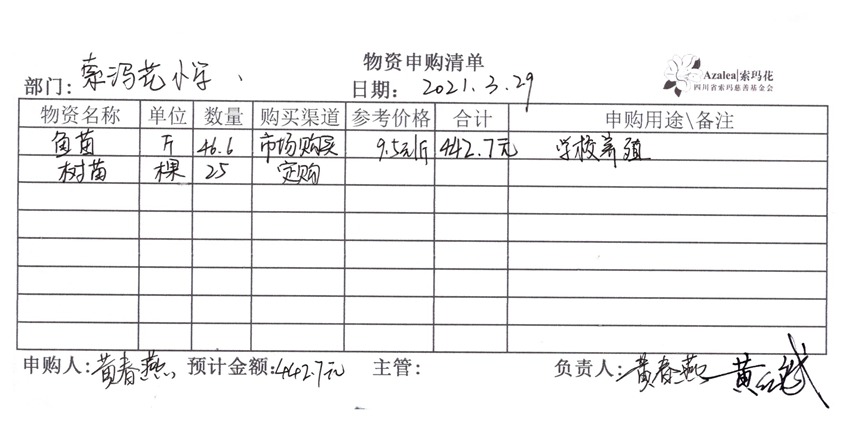 物资申购清单
Azalea|索玛花
四川省索玛慈善基金会
部门：索玛花小学、 日期： 2021.3.29
物资名称 单位 数量 购买渠道 参考价格 合计 申购用途\备注
鱼苗 斤 46.6 市场购买 9.5元/斤 442.7元 学校养殖
树苗 棵 25 定购
申购人：黄春燕 预计金额：442.7元 主管： 负责人：黄春燕